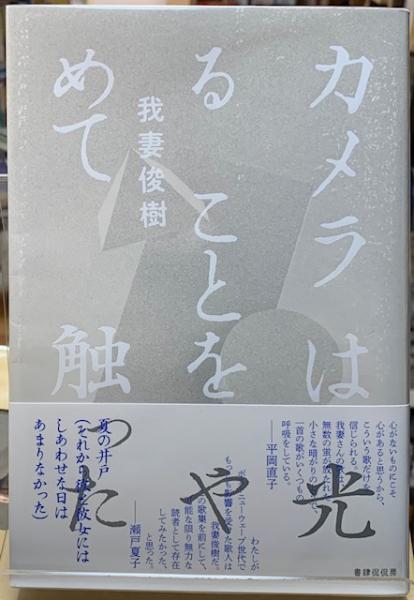 カメラは光
ることをや
めて触った
我妻俊樹
心がないものにこそ、
心があると思うから、
こういう歌だけを
信じられる。
我妻さんの歌は、
無数の蛍が放たれた
小さな暗がりの
一首の歌がいくつもの
呼吸をしている。
――平岡直子
わたしが
ポストニューウェーブ世代で
もっとも影響を受けた歌人は
我妻俊樹だ。
の歌集を前にして、
可能な限り無力な
読者として存在
してみたかった、
と思った。
――瀬戸夏子
夏の井戸
(それから彼と彼女には
しあわせな日は
あまりなかった)
書肆侃侃房